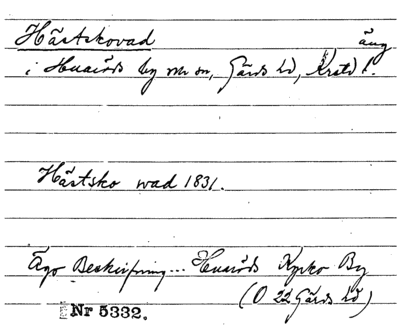 Hästskovad äng
i Huaröds by o sn, Gärds hd, Krstd l.
Hästsko wad 1831.
Ägo Beskrifning... Huaröds Kyrko By
(O 22 Gärds hd)
Nr 5332.